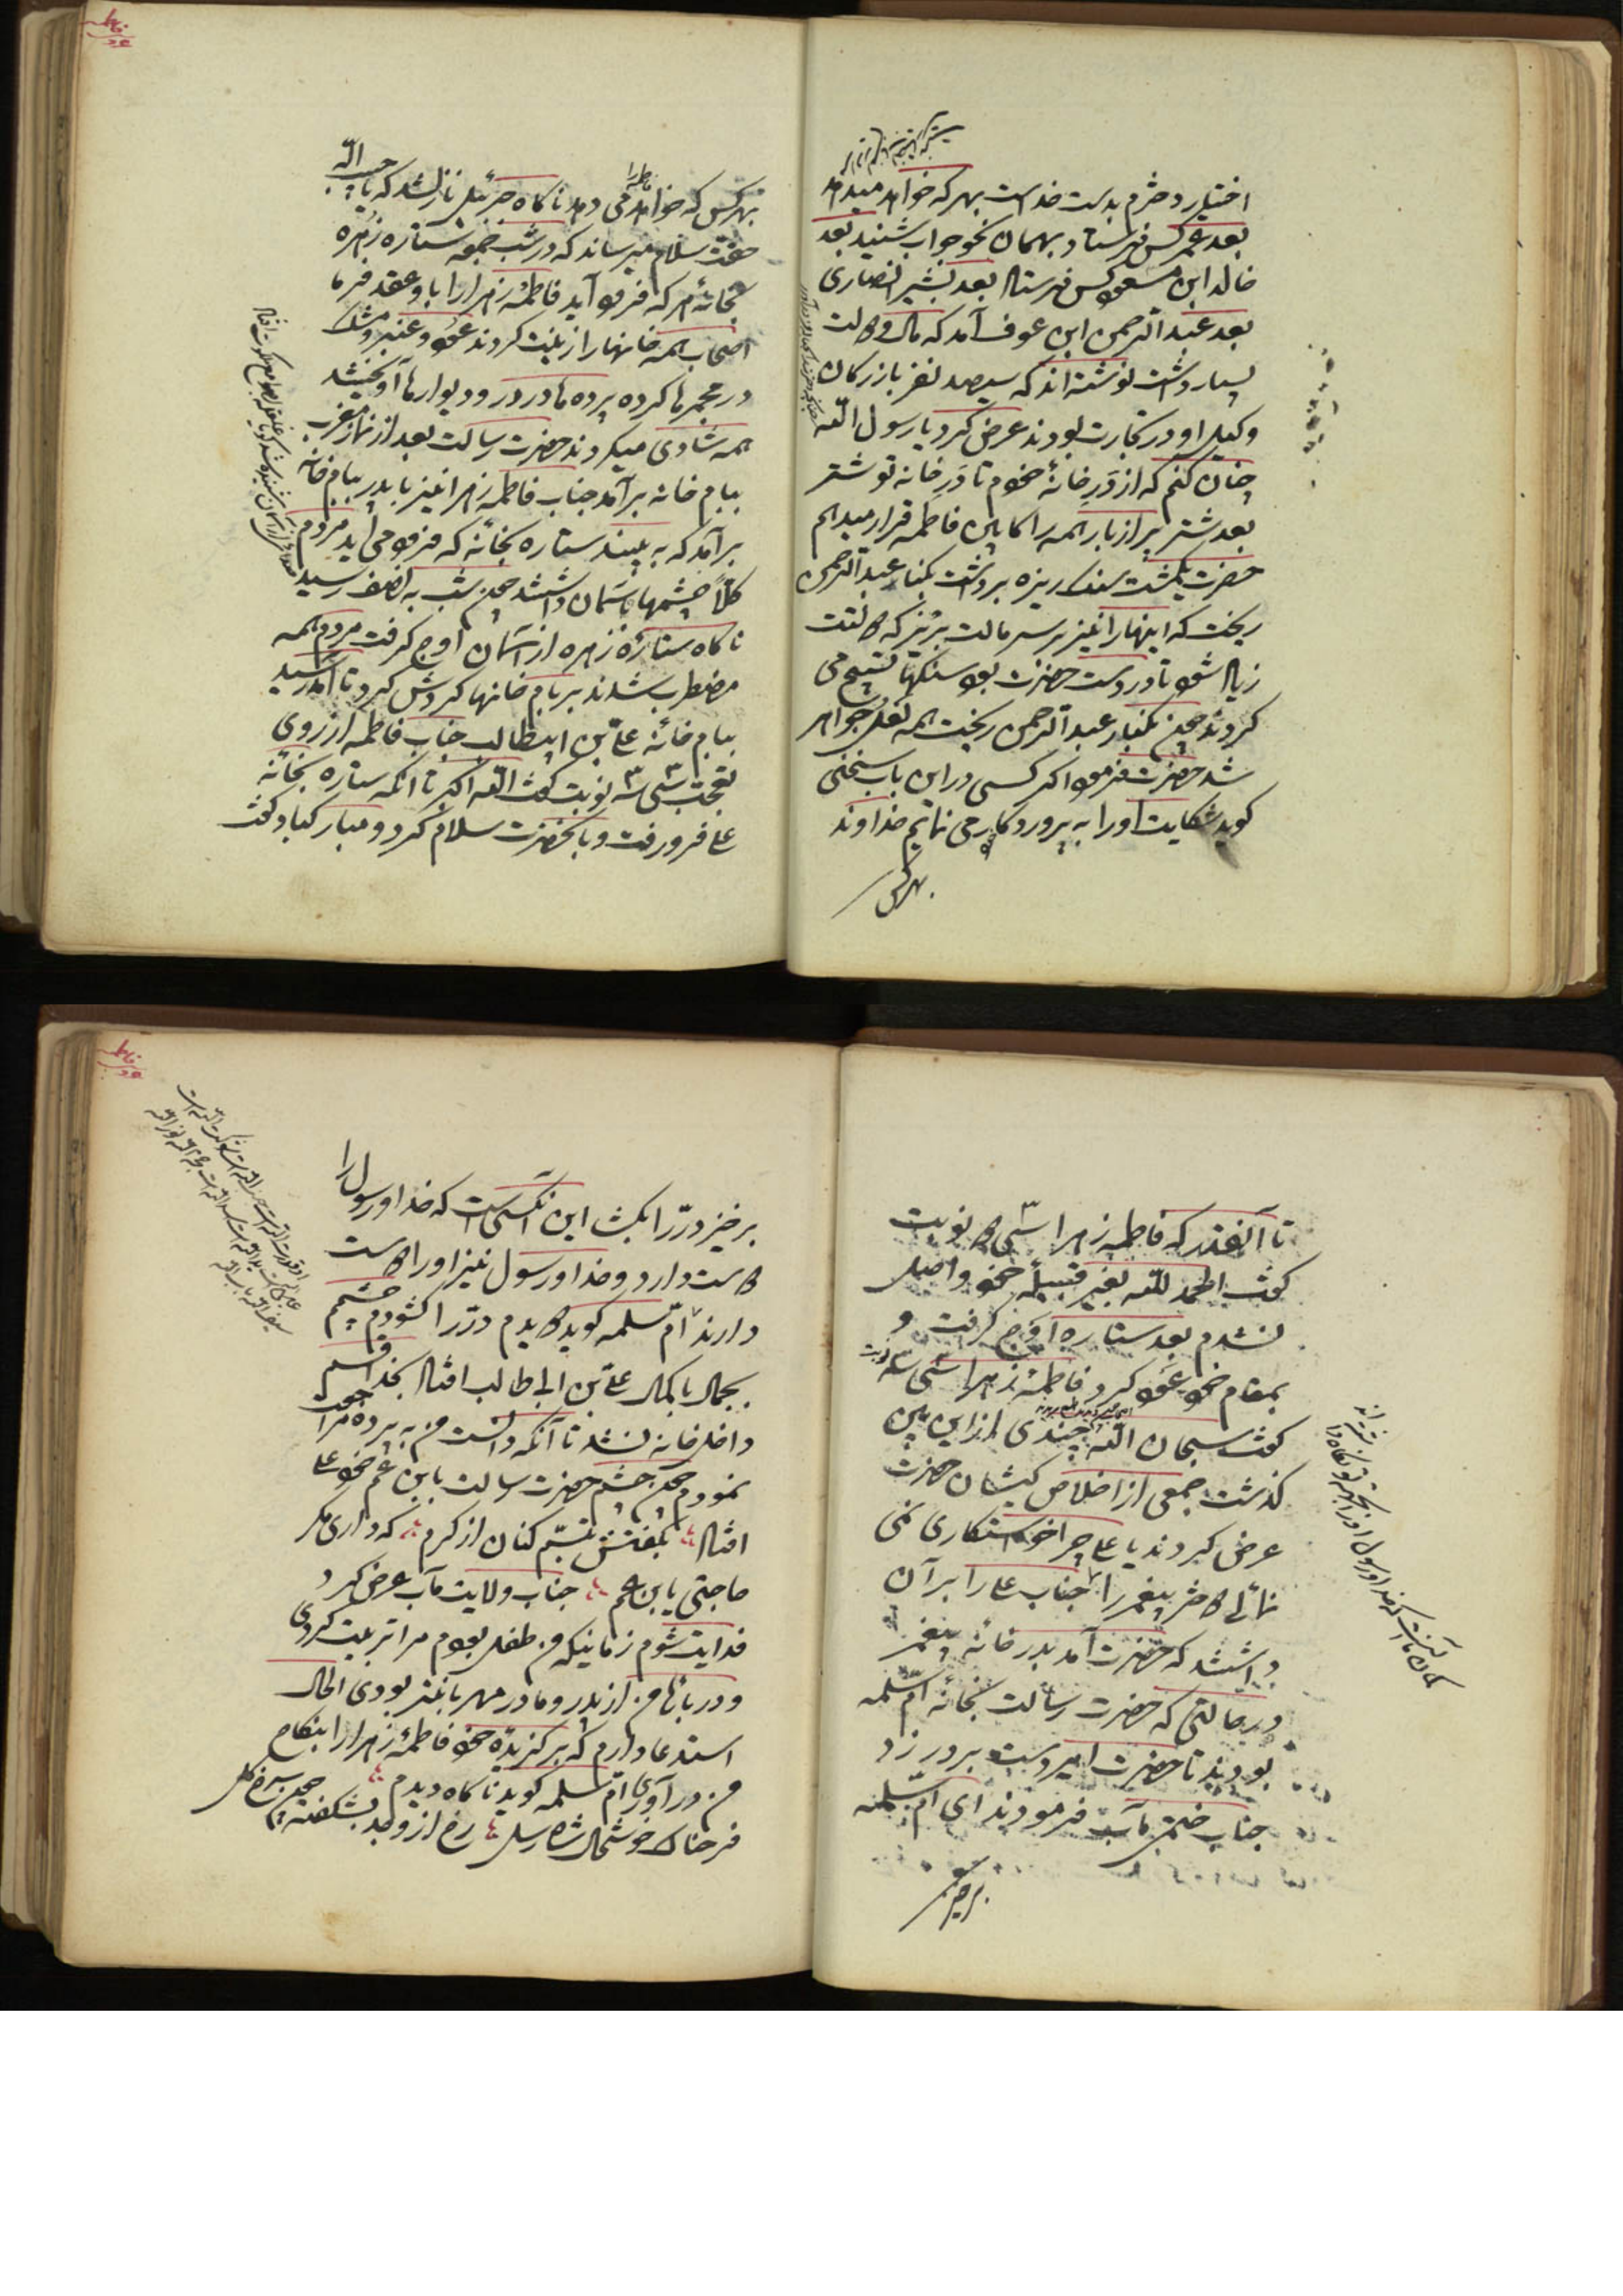 اختیار دخترم بدست خداست بهر که خواهد میدهد
بعد عمر کس فرستاد بهمان نحو جواب شنید بعد
خالد ابن مسعود کس فرستاد بعد بشیر انصاری
بعد عبد الرحمن ابن عوف آمد که مال و دولت
بسیار داشت نوشته‌اند که سیصد نفر بازرکان
وکیل او در تجارت بودند عرض کرد یا رسول الله
چنان کنم که از در خانهٔ خود تا در خانه تو شتر
بعد شتر پر از بار همه را کابین فاطمه قرار میدهم
حضرت یکمشت سنک ریزه برداشت بکنار عبد الرحمن
ریخت که اینها را نیز بر سر مالت بریز که دولتت
زیاد شود تا در دست حضرت بود سنکها تسبیح می
کردند چون بکنار عبد الرحمن ریخت همه لعل و جواهر
شد حضرت فرمود اکر کسی در این باب سخنی
کوید شکایت او را به پروردکار می نمایم خداوند
بهر کس
بهر کس که خواهد فاطمه را می دهد ناکاه جبرئیل نازل شد که یا حبیب الله
حقت سلام میرساند که در شب جمعه ستاره زهره
بخانهٔ هر که فرود آید فاطمهٔ زهرا را با و عقد فرما
اصحاب همه خانها را زینت کردند عود و عنبر و مشک
در مجمرها کرده پرده ها در در و دیوارها آویختند
همه شادی میکردند حضرت رسالت بعد از نماز مغرب
ببام خانه برآمد جناب فاطمه زهرا نیز با پدر ببام خانه
برآمد که به بینند ستاره بخانه که فرود می آید مردم
کلا چشمها باسمان داشتند چون شب به نصف رسید
ناکاه ستارهٔ زهره از آسمان اوج کرفت مردم همه
مضطرب شدند بر بام خانها کردش کرد تا آمد رسید
ببام خانهٔ علی بن ابیطالب جناب فاطمه از روی
تعجب سی و سه نوبت کفت الله اکبر تا آنکه ستاره بخانه
علی فرو رفت و بآنحضرت سلام کرد و مبارکباد کفت
تا آنقدر که فاطمه زهرا سی و سه نوبت
کفت الحمد لله بغیر قبیلهٔ خود واصل
نشدم بعد ستاره اوج کرفت و
بمقام خود عود کرد فاطمهٔ زهرا سی و سه نوبت
کفت سبحان الله چندی از این بین
کذشت جمعی از اخلاص کیشان حضرت
عرض کردند یا علی چرا خواستکاری نمی
نمائی دختر پیغمبر را جناب علی را بر آن
داشتند که حضرت آمد بدر خانهٔ پیغمبر
در حالتی که حضرت رسالت بخانه ام سلمه
بودند تا حضرت امیر دست بر در زد
جناب ختمی مآب فرمودند ای ام سلمه
برخیز
برخیز در را بکشا این آنکسی است که خدا و رسول را
دوست دارد و خدا و رسول نیز او را دوست
دارند ام سلمه کوید دویدم در را کشودم چشمم
بجمال با کمال علی بن ابی طالب افتاد بخدا قسم
داخل خانه نشد تا آنکه دانست من به پرده مراجعت
نمودم چون چشم حضرت رسالت بابن عم خود علی
افتاد بکفتش تبسم کنان از کرم که داری مکر
حاجتی یا بن عم جناب ولایت مآب عرض کرد
فدایت شوم زمانیکه من طفل بودم مرا تربیت کردی
و در باب من از پدر و مادر مهربانتر بودی الحال
استدعا دارم که برکزیدهٔ خود فاطمهٔ زهرا را بنکاح
من در آوری ام سلمه کوید ناکاه دیدم
فرحناک و خوشحال شاه رسل رخ از وجد بشکفته چون سرخ کل